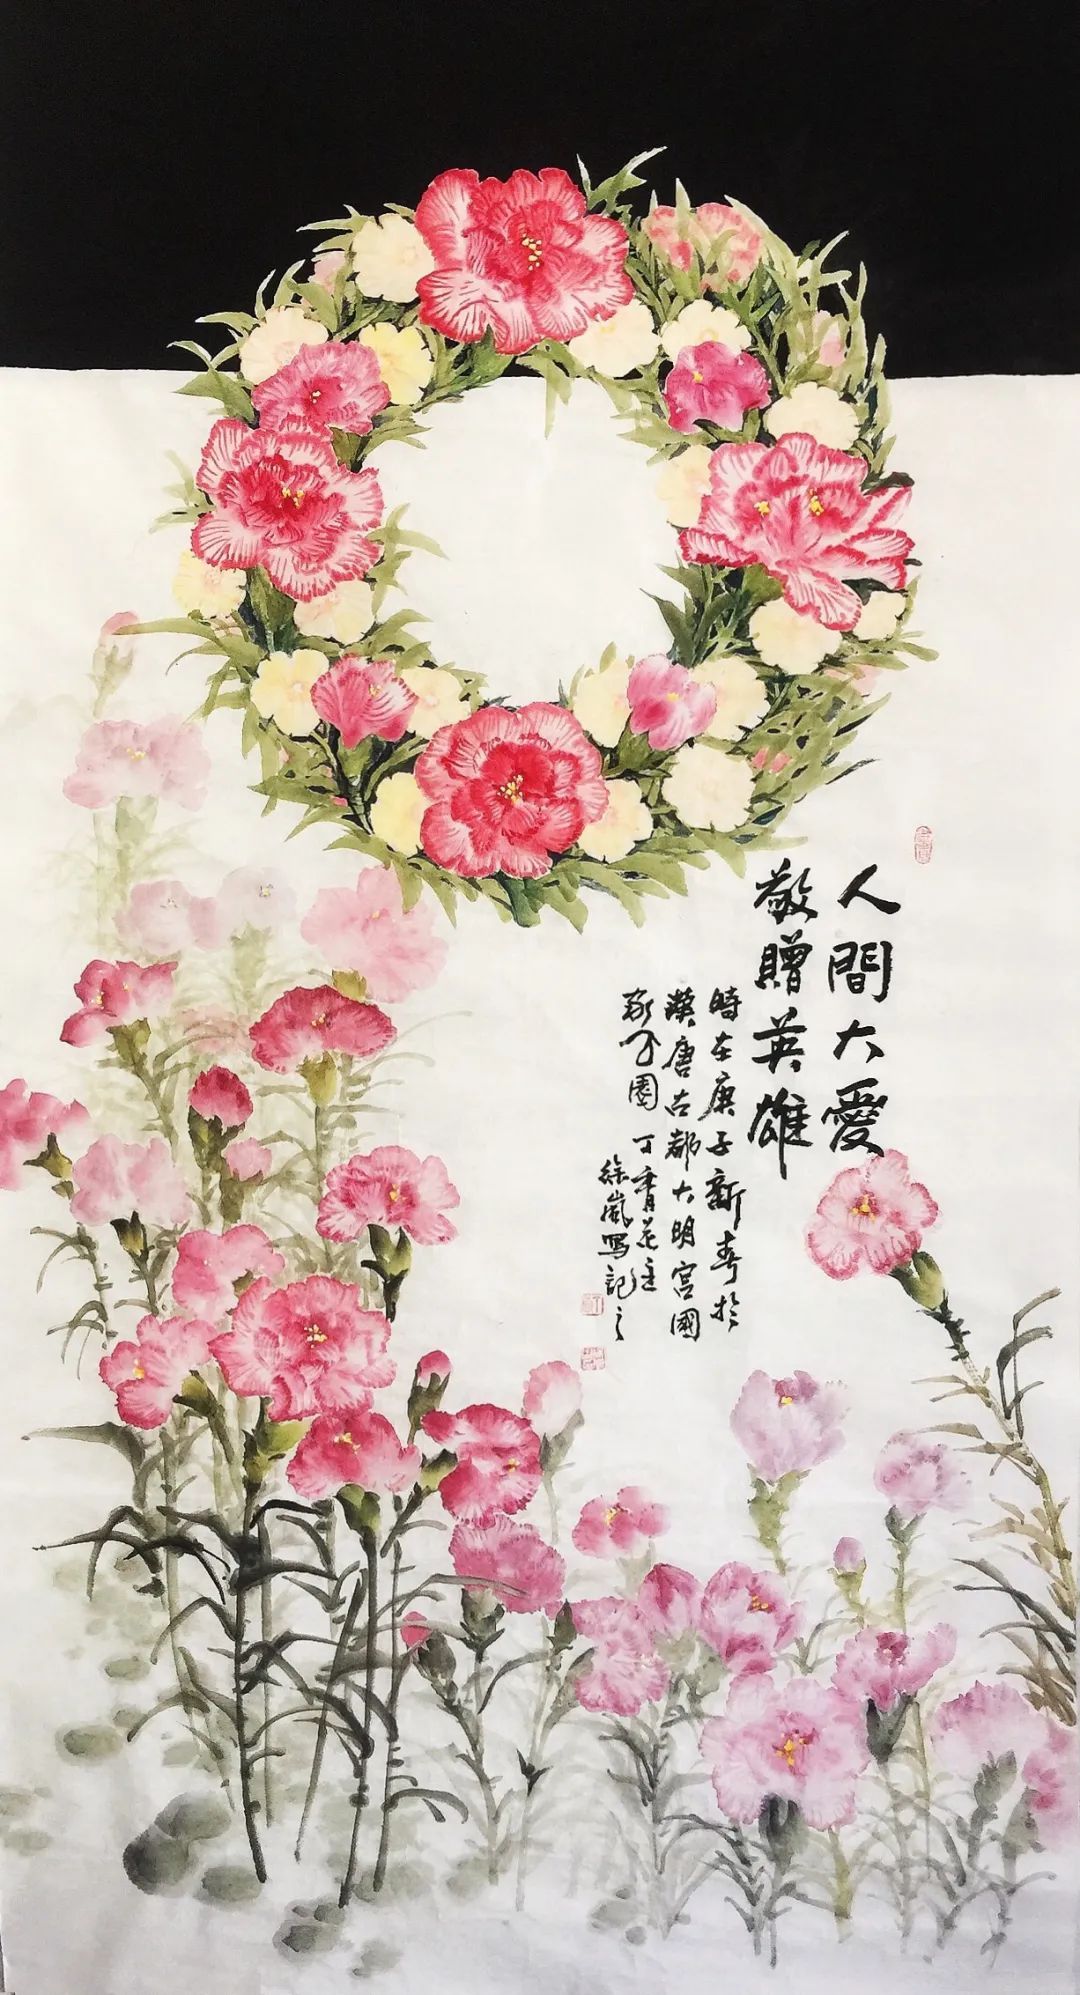 人間大愛
敬贈英雄
時在庚子新春於
漢唐古都大明宮國
家公園 丁香花主
徐嵐寫記之